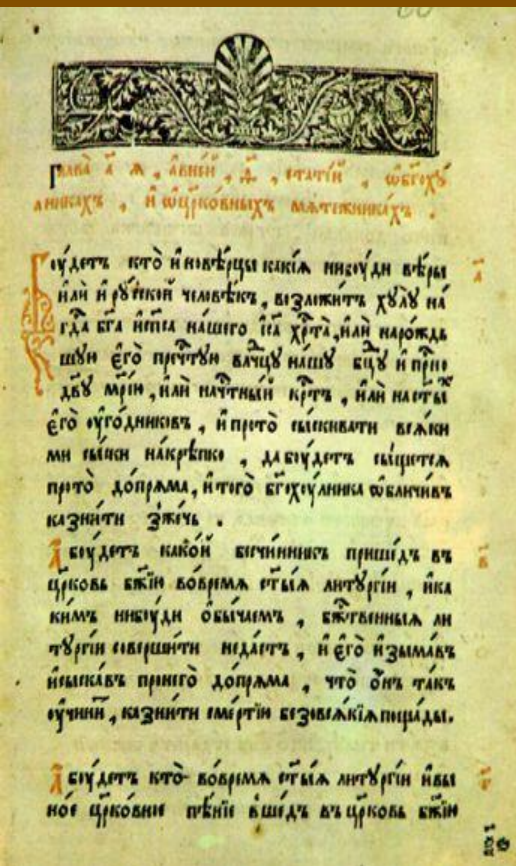 Глава̀ а҃ я , а в неи̑ , ѳ҃ , статі́й , ѡ бг҃охꙋ́
лникахъ , и҆ ѡ цр҃ко́вныхъ мѧте́жникахъ .
Бꙋ́детъ кто̀ и҆новѣ́рцы какі́ѧ нибꙋ́ди вѣ́ры а҃
и҆лѝ и҆ рꙋ́сской человѣ́къ , возложи́тъ хꙋлꙋ̀ на
гд҃а бг҃а и҆ сп҃са на́шего і҆с҃а хр҃та̀ , и҆лѝ наро́ждь
шꙋю є҆го̀ преч҃тꙋю влч҃цꙋ на́шꙋ бц҃ꙋ и҆ прно
дв҃ꙋ мр҃і́ю , и҆лѝ на ч҃тны́й кр҃тъ , и҆лѝ на ст҃ы́х
є҆го̀ ѹ҆го́дниковъ , и҆ про то̀ сыскивати всѧ́ки
ми сы́ски накрѣ́пко , да бꙋ́детъ сы́щетсѧ
про то̀ до́прѧма , и҆ того̀ бг҃охꙋ́лника ѡ҆бличи́въ
казни́ти зже́чь .
А҆ бꙋ́детъ како́й безчи́нникъ прише́дъ въ в҃
цр҃ковь бж҃їю во вре́мѧ ст҃ы́ѧ литꙋргі́и , и҆ ка
ки́мъ нибꙋ́ди о҆бы́чаемъ , бж҃твенныѧ ли
тꙋргі́и соверши́ти не да́стъ , и҆ є҆го̀ и҆зыма́въ
и҆ сыска́въ про него̀ до́прѧма , что̀ о҆́нъ та́къ
ѹ҆чини́т , казни́ти сме́ртїю безо всѧ́кїѧ поща́ды .
А҆ бꙋ́детъ кто̀ во вре́мѧ ст҃ы́ѧ литꙋргі́и и҆ в ы г҃
но́е цр҃ко́вное пѣ́нїе вше́дъ въ цр҃ковь бж҃їю